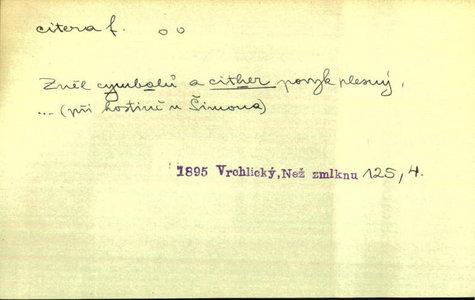 citera f. oo
Zněl cymbalů a cither povyk plesný,
... (při hostině u Šimona)
1895 Vrchlický, Než zmlknu 125, 4.